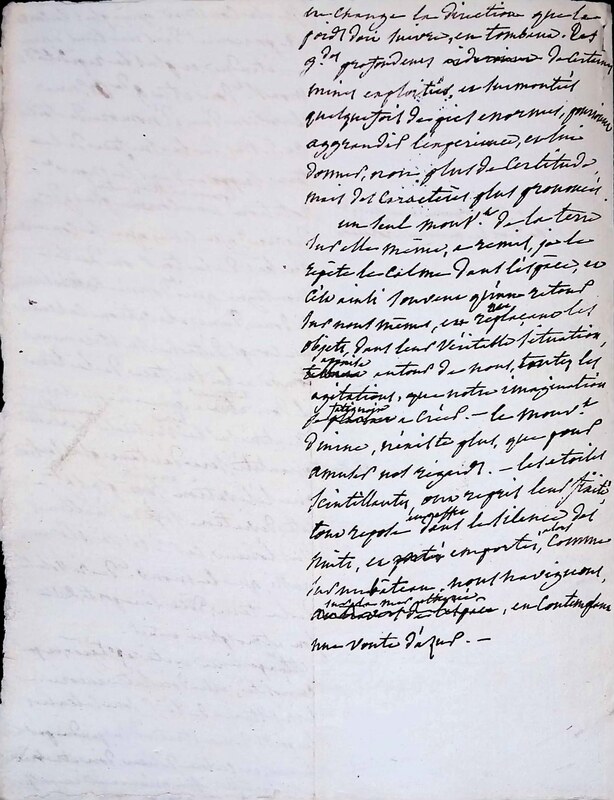 en change la direction que le
poids doit suivre, en tombant. Les
g.des profondeurs de certaines
mines exploitées, et surmontées
quelquefois de pics enormes, pourront
aggrandir l'experience, et lui
donner, non plus de certitude,
mais des caractères plus prononcés.
un seul mouv.t de la terre
sur elle même, a remis, je le
repete le calme dans l'espace, et
c'est ainsi souvent qu'un retour
sur nous mêmes, en replaçant les
objets, dans leur véritable situation,
appaise autour de nous, toutes les
agitations, que notre imagination
fatiguée a créés. — le mouv.t
diurne, n'éxiste plus, que pour
amuser nos regards. — les etoiles
scintillantes, ont repris leur fixité,
tout repose en effet dans le silence des
nuits, et emportés, alors, comme
sur un bateau, nous naviguons,
sur la mer etherée, en contemplant
une voute d'azur. —